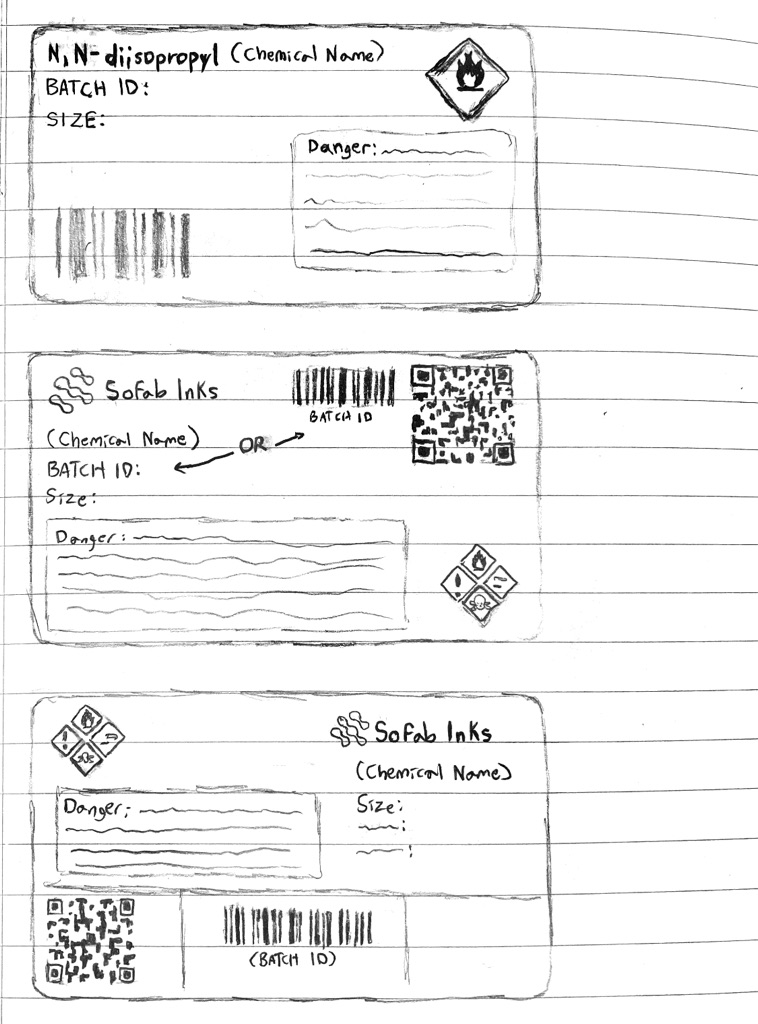 N,N-diisopropyl (Chemical Name)
BATCH ID:
SIZE:
Danger:
Sofab Inks
BATCH ID
(Chemical Name)
OR
BATCH ID:
Size:
Danger:
Sofab Inks
(Chemical Name)
Danger:
Size:
(BATCH ID)